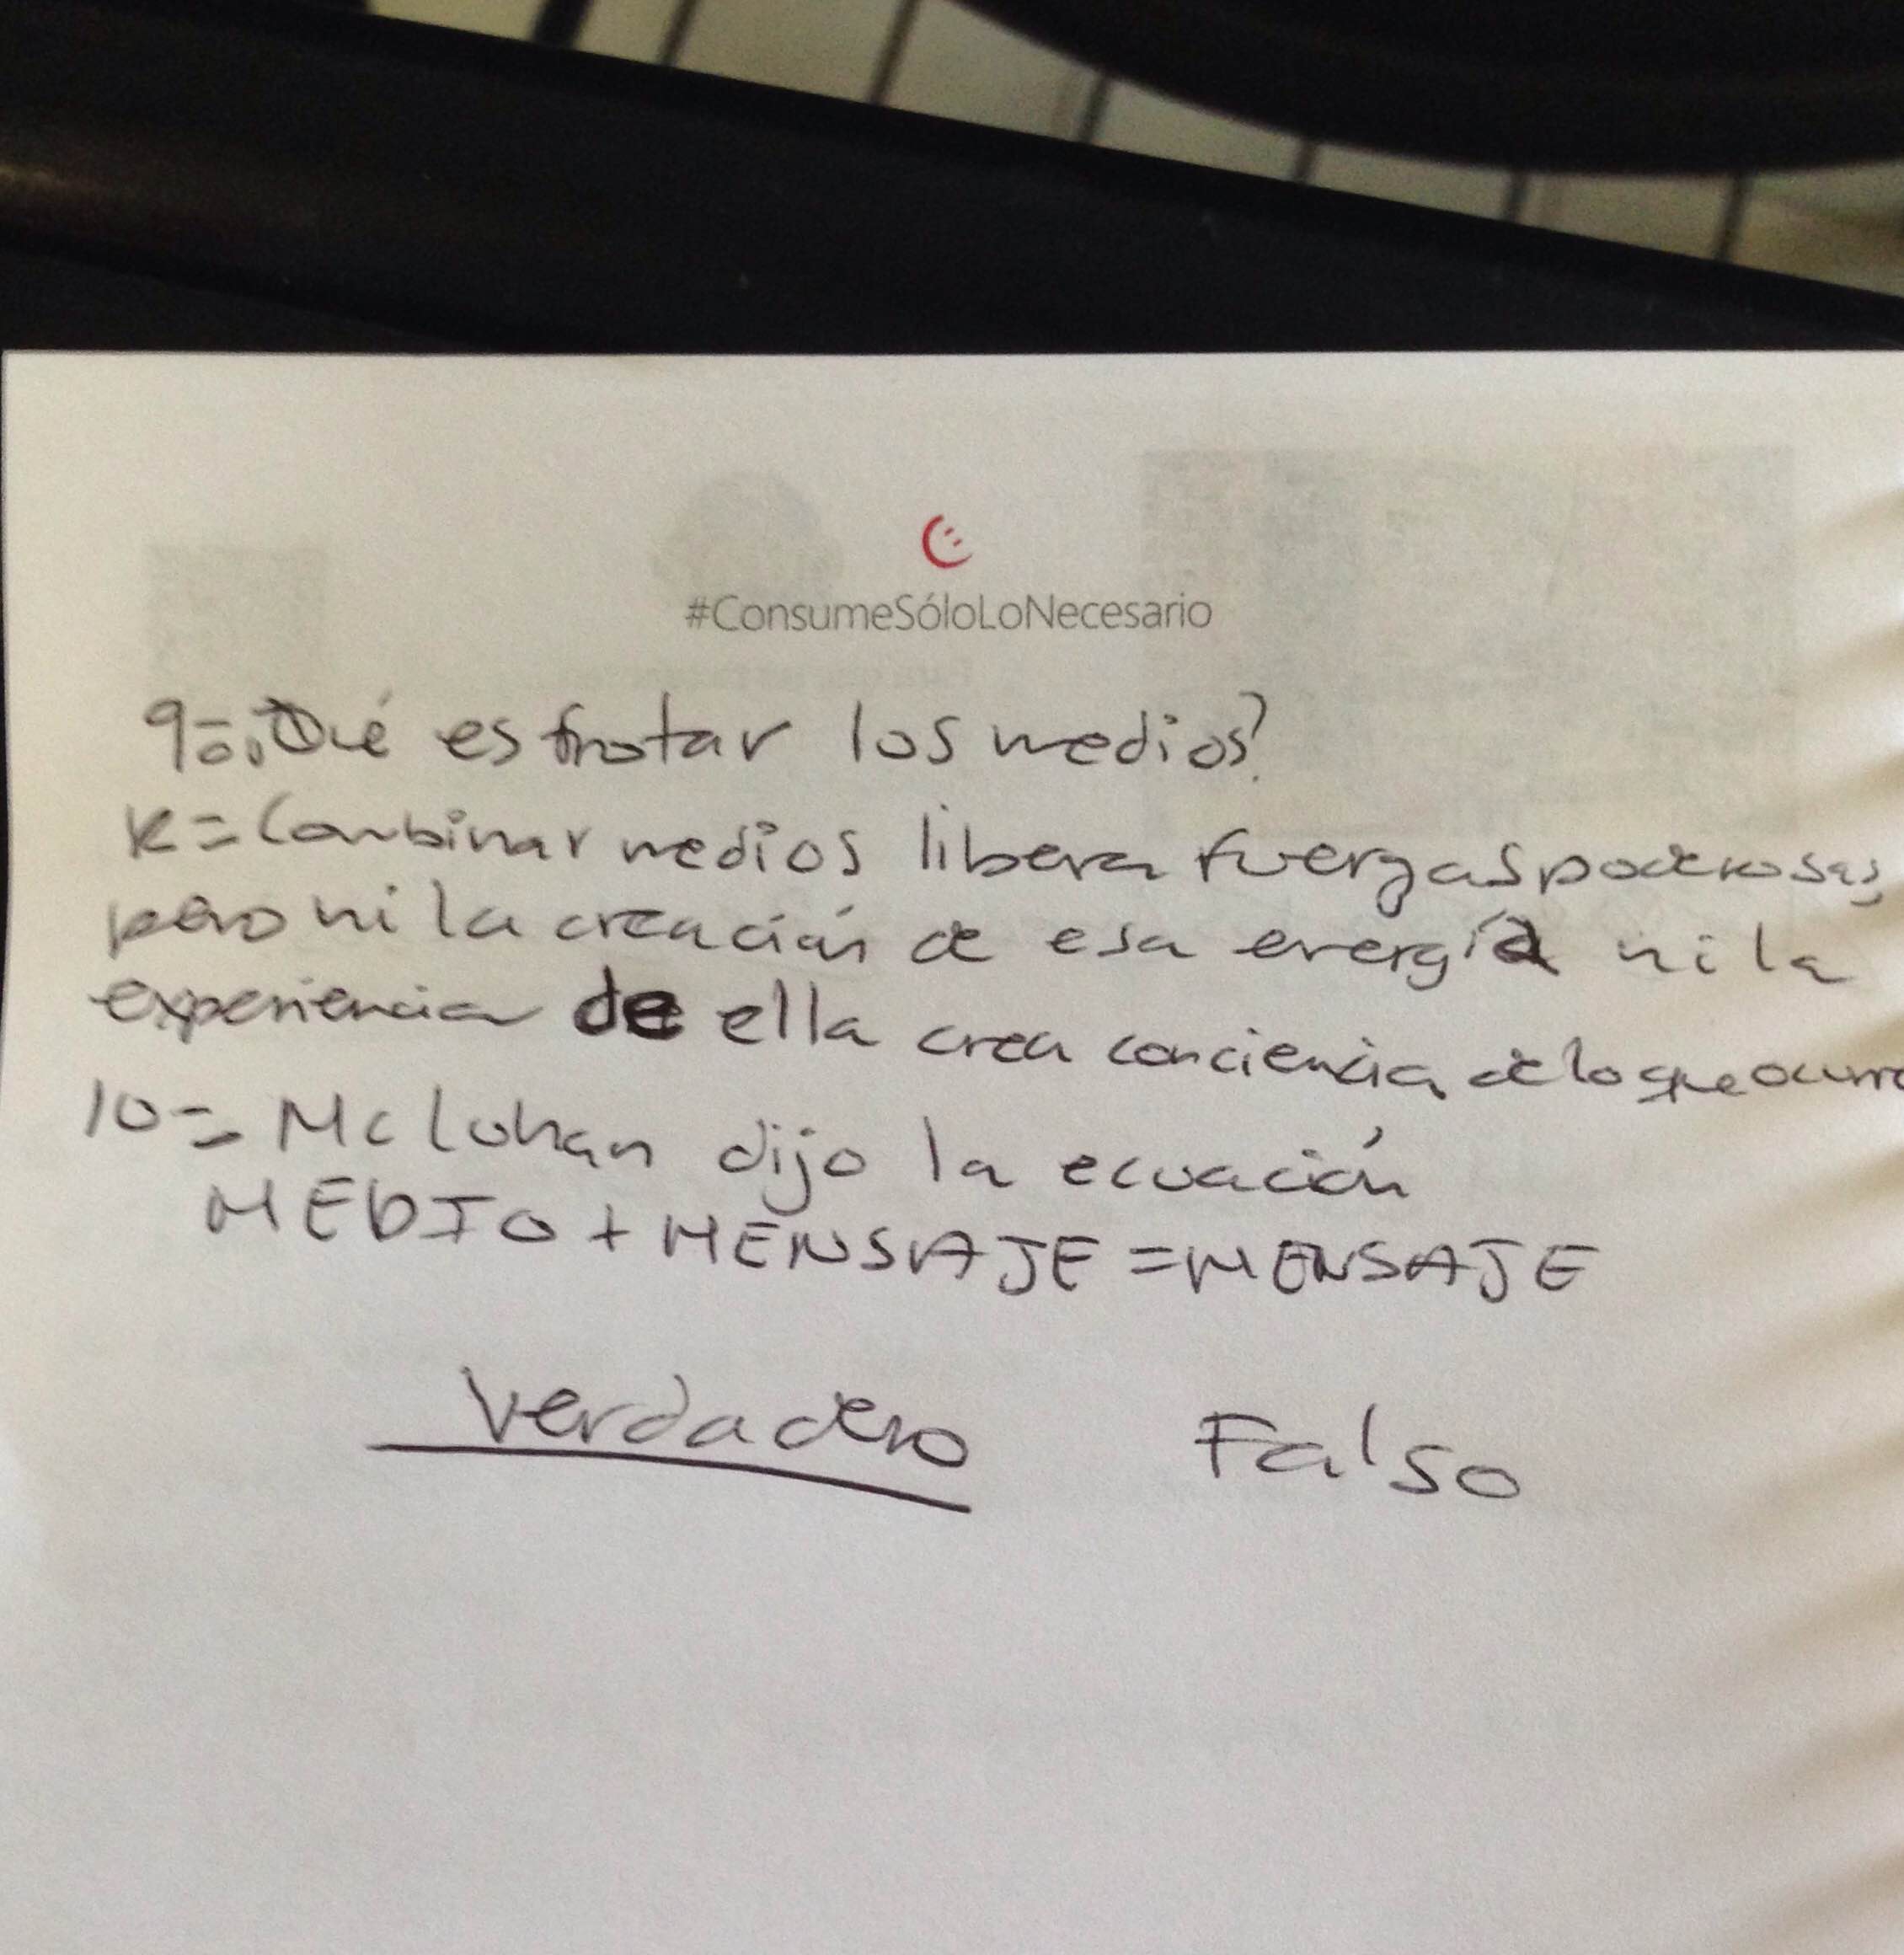 #ConsumeSóloLoNecesario
9=¿Qué es frotar los medios?
R= Combinar medios libera fuerzas poderosas,
pero ni la creación de esa energía ni la
experiencia de ella crea conciencia de lo que ocurre
10= McLuhan dijo la ecuación
MEDIO + MENSAJE = MENSAJE
Verdadero Falso